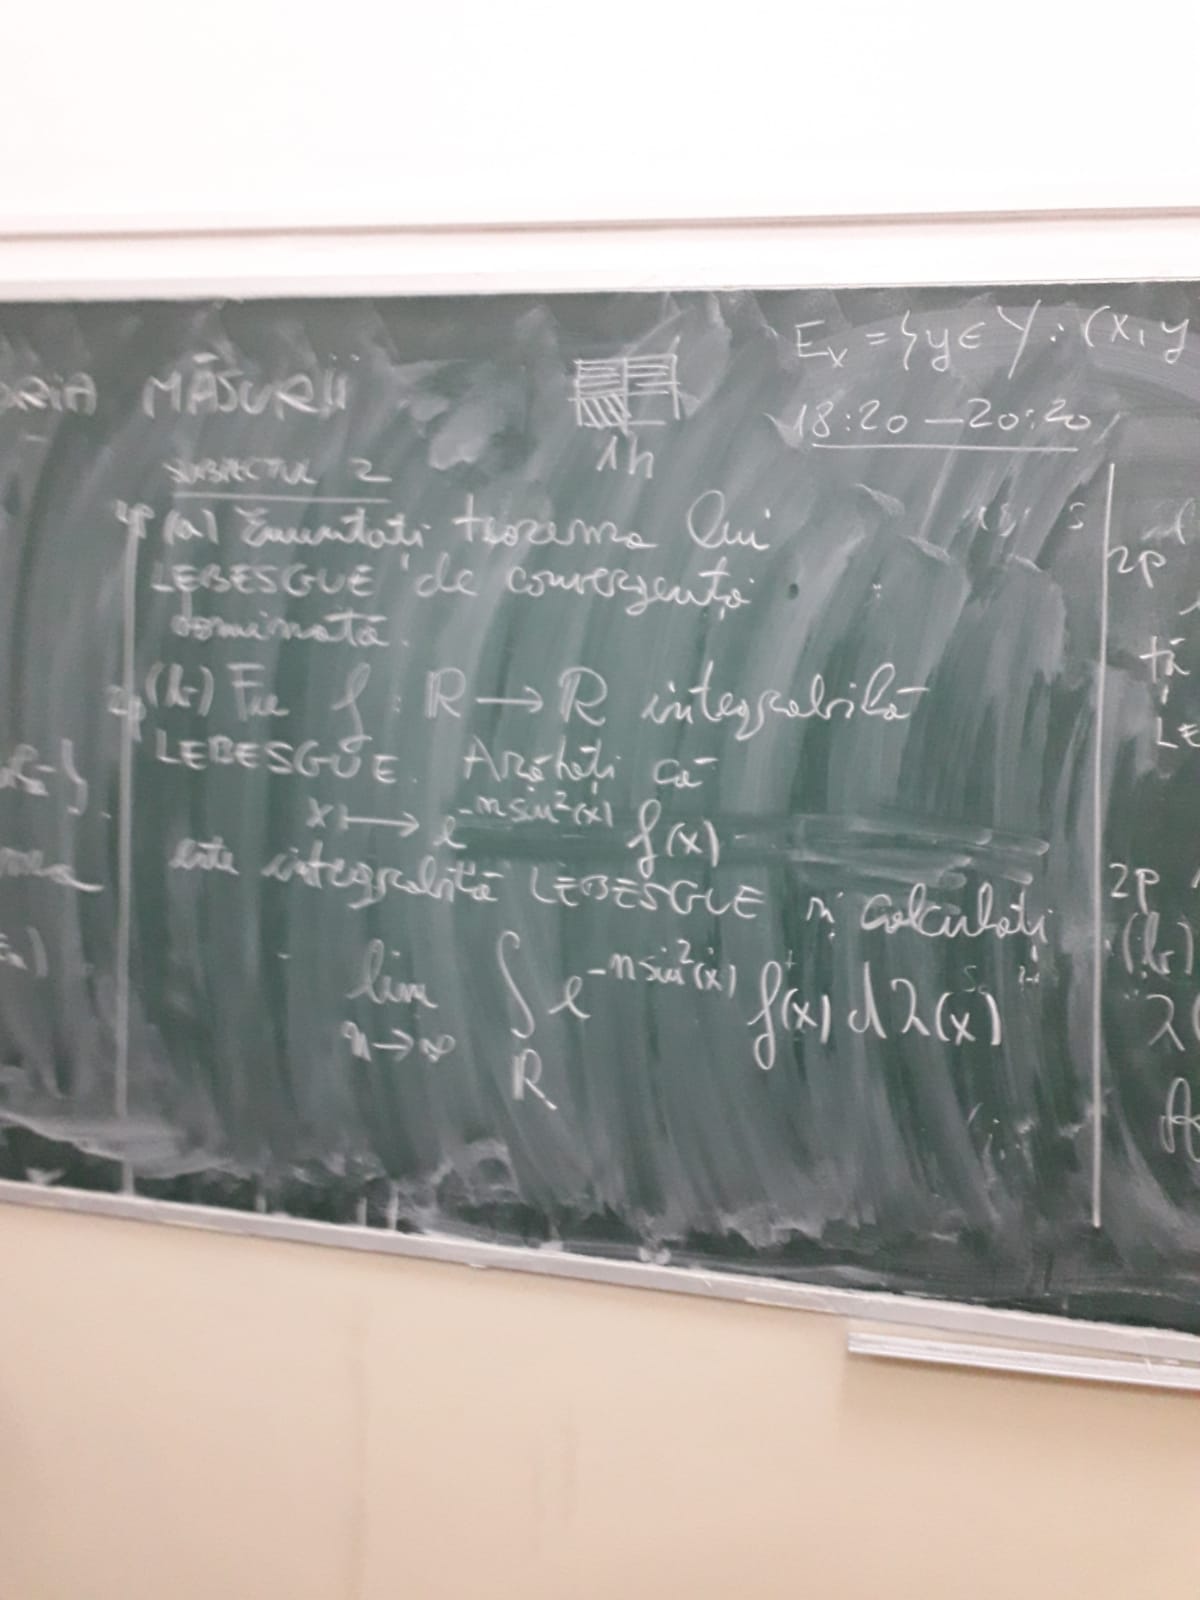 MĂSURII
1h
E_x = {y ∈ Y : (x, y
18:20 – 20:20
SUBIECTUL 2
(a) Enunțați teorema lui
LEBESGUE de convergență
dominată.
(b) Fie f : R → R integrabilă
LEBESGUE. Arătați că
x ↦ e^{-n sin²(x)} f(x)
este integrabilă LEBESGUE și calculați
lim_{n→∞} ∫_R e^{-n sin²(x)} f(x) dλ(x)
2p
tă
LE
2p
(b)
λ(